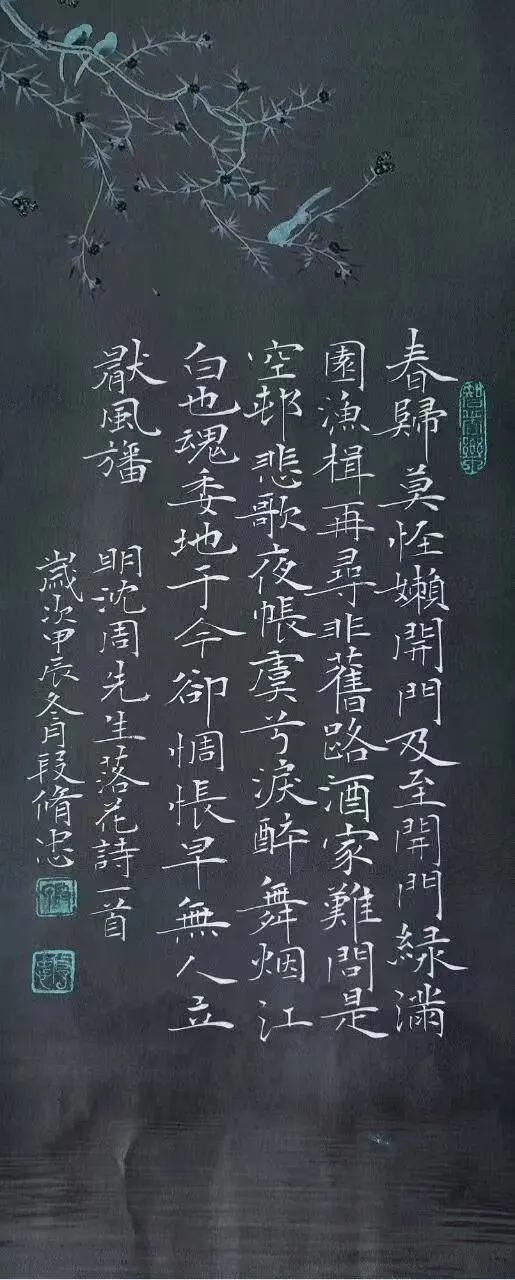 春歸莫怪嬾開門及至開門緑滿
園漁楫再尋非舊路酒家難問是
空邨悲歌夜帳虞兮淚醉舞烟江
白也魂委地于今卻惆悵早無人立
猒風旛
明沈周先生落花詩一首
歲次甲辰冬月段脩忠